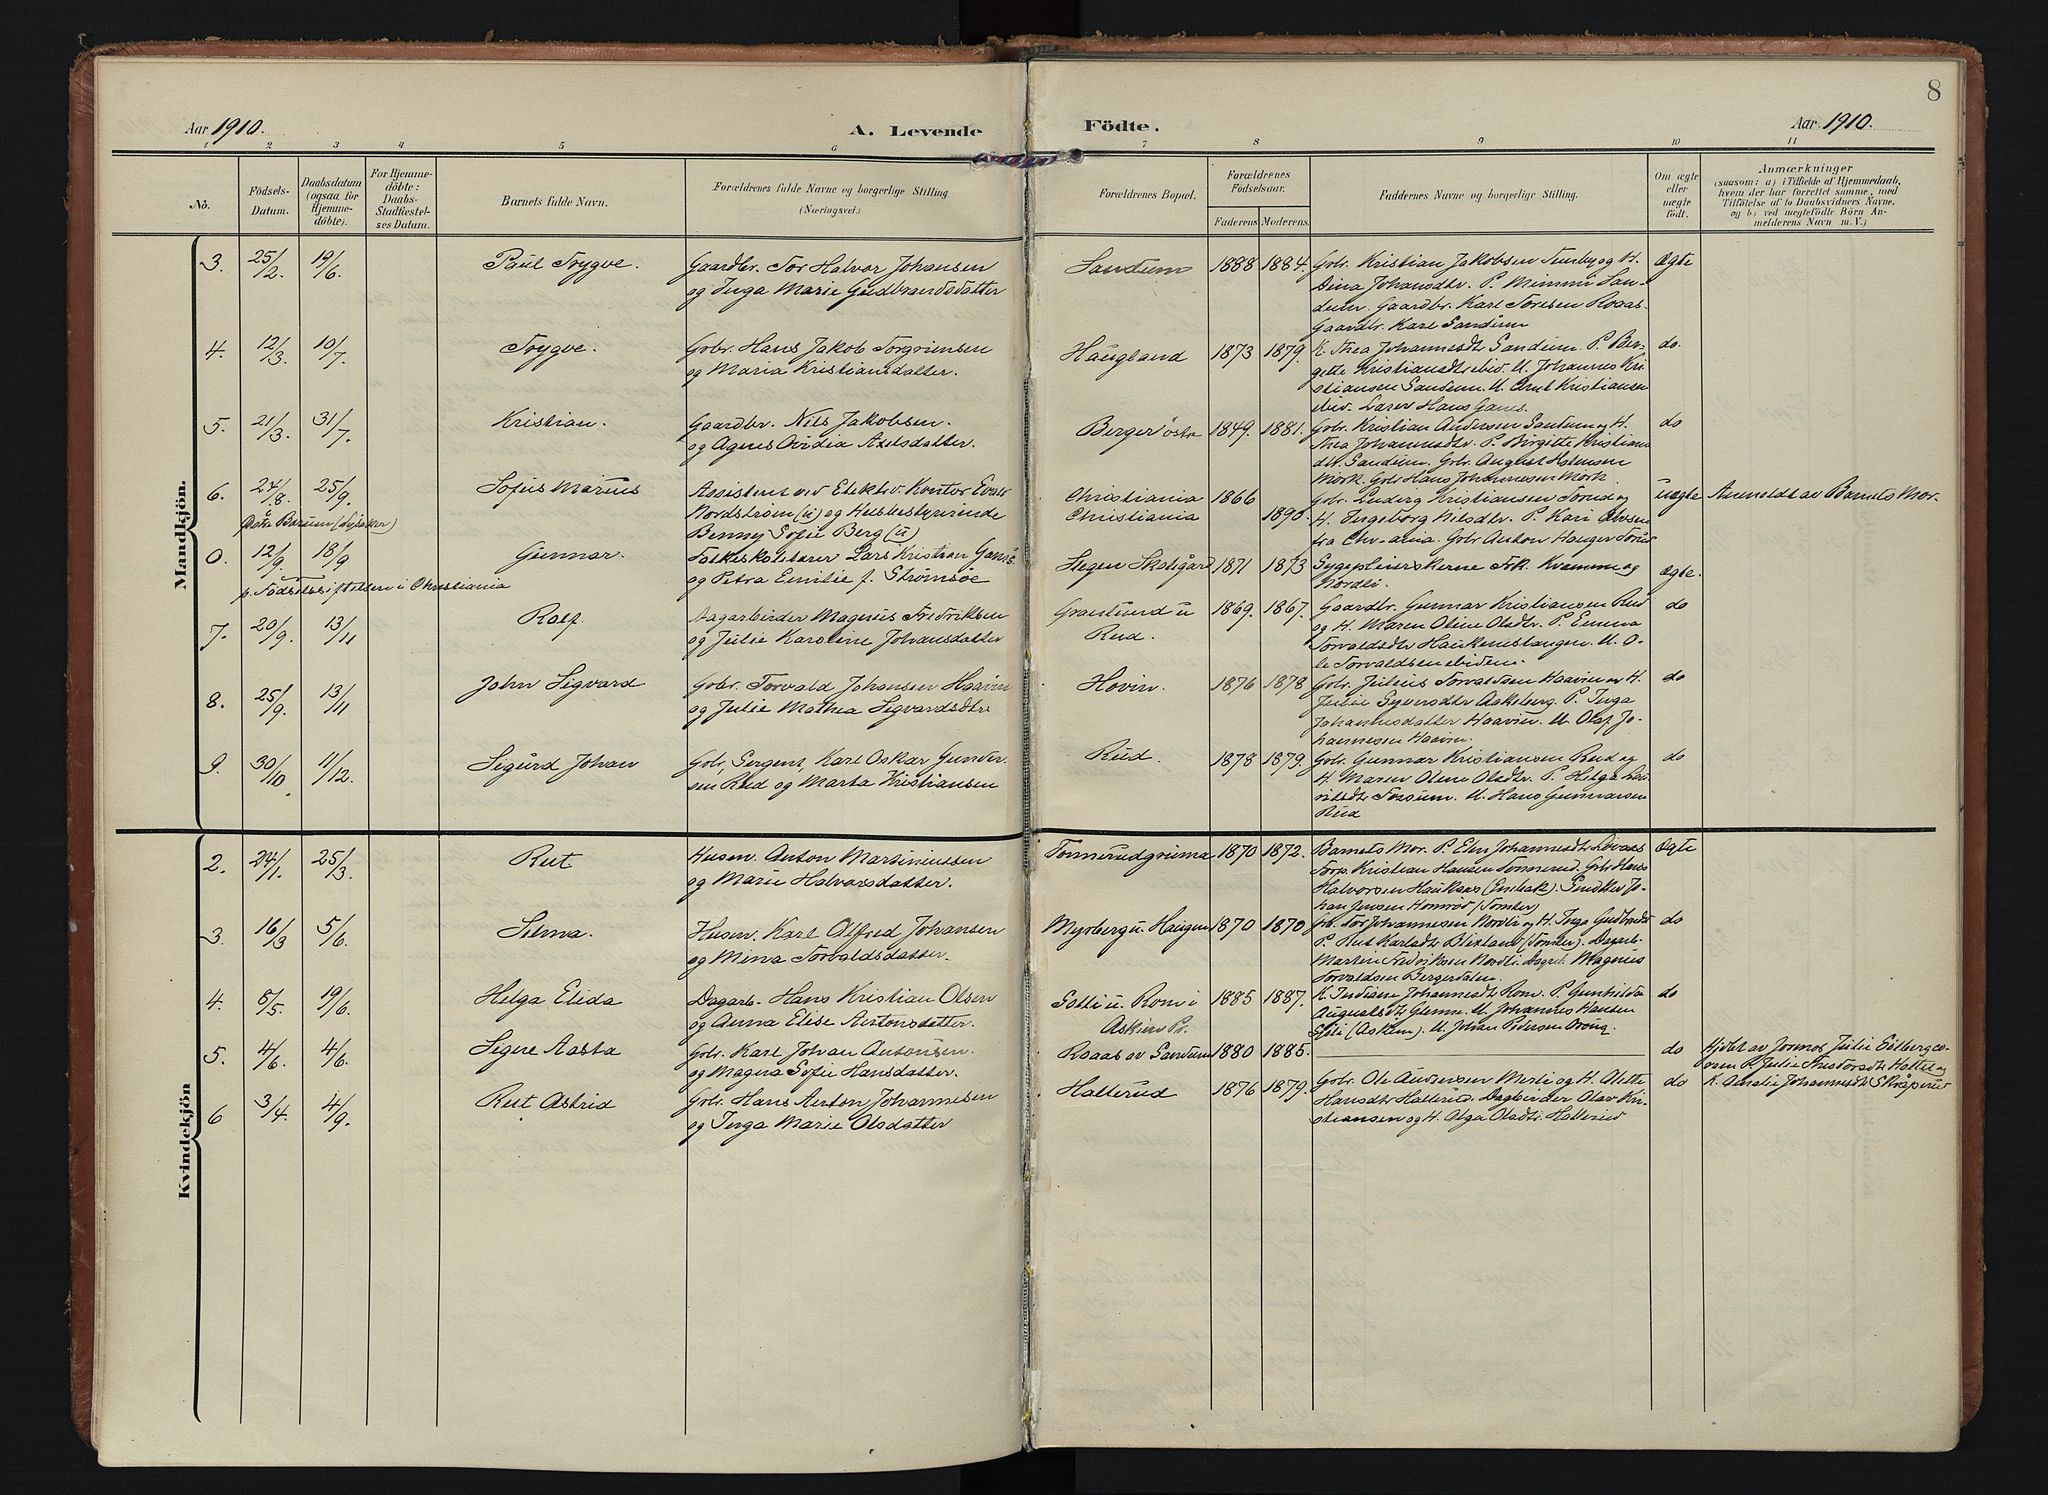 8
Aar 1910.
A. Levende
Födte.
Aar 1910.
1 2 3 4 5 6 7 8 9 10 11
No.
Födsels-
Datum.
Daabsdatum
(ogsaa for
Hjemme-
döbte).
For Hjemme-
döbte:
Daabs-
Stadfæstel-
ses Datum.
Barnets fulde Navn.
Forældrenes fulde Navne og borgerlige Stilling
(Næringsvei.)
Forældrenes Bopæl.
Forældrenes
Födselsaar.
Faderens Moderens.
Faddernes Navne og borgerlige Stilling.
Om ægte
eller
uægte
födt.
Anmærkninger
(saasom: a) i Tilfælde af Hjemmedaab,
hvem der har forrettet samme, med
Tilföielse af to Daabsvidners Navne,
og b) ved uægtefödte Börn An-
melderens Navn m. V.)
Mandkjön.
3. 25/2. 19/6. Paul Trygve. Gaardbr. Tor Halvor Johansen
og Inga Marie Gudbrandsdatter
Sandum 1888 1884. Gbr. Kristian Jakobsen og H.
Dina Johansdtr. P. Mimmi San-
dum. Gaardbr. Karl Toresen Roaas.
Gaardbr. Karl Sandum
Ægte
4. 12/3. 10/7. Trygve. Gbr. Hans Jakob Torgrimsen
og Maria Kristiansdatter.
Haugland 1873 1879. K. Thea Johannesdtr Sandum. P. Bir-
gitte Kristiansdtr ibid. U. Johannes Kri
stiansen Sandum. U. Emil Kristiansen
ibid. Lærer Hans Ganes.
do.
5. 21/3. 31/7. Kristian. Gaardbr. Nils Jakobsen.
og Agnes Ovidia Axelsdatter.
Berger östr 1849. 1881. Gbr. Kristian Andersen Sandum og H.
Thea Johannesdtr. P. Birgitte Kristians
dtr. Sandum. Gbr. August
Mörk. Gbr. Hans Johannesen Mörk.
do
6. 24/8. 25/9. Sofus Marius Assistent ved Elektr. Kontor
Nordström (u) og Husbestyrerinde
Benny Sofie Berg (u)
Bærum
Christiania 1866
Christiania 1890.
Gbr. Ludvig Kristiansen Torud og
H. Ingeborg Nilsdtr. P. Kari Olsen
fra Chr-ania. Gbr. Anton Hauger Torud
uægte Anmeldt av Barnets Mor.
0. 12/9. 18/9 Gunnar. Folkeskolelærer Lars Kristian Ganes
og Petra Emilie f. Strömsöe
p. Födselsstiftelsen i Christiania
Skolegård 1871 1873 Sygepleierskerne Frk. Kvamme og
Nordli.
Ægte.
7. 20/9. 13/11 Rolf Dagarbeider Magnus Fredriksen
og Julie Karoline Johansdatter
Granlund u
Rud. 1869. 1867. Gaardbr. Gunnar Kristiansen Rud
og H. Maren Oline Olsdtr. P. Emma
Torvaldsdtr Haukenestangen. U. O-
le Torvaldsen ibidem.
do
8. 25/9. 13/11 John Sigvard Gbr. Torvald Johansen Haavin
og Julie Mathea Sigvardsdtr
Hovin. 1876 1878 Gbr. Julius Torvaldsen Haavin og H.
Julie Syversdtr Aakeberg. P. Inga
Johannesdatter Haavin. U. Olaf Jo-
hannesen Haavin.
do
9. 30/10. 11/12. Sigurd Johan Gbr, Sergent, Karl Oskar Gunder
sen Rud og Marta Kristiansen
Rud. 1878 1879. Gbr. Gunnar Kristiansen Rud og
H. Maren Oline Olsdtr. P. Helga
Tosum. U. Hans Gunnarsen
Rud
do
Kvindekjön
2. 24/1. 25/3. Rut Husm. Anton Martiniussen
og Marie Halvorsdatter.
Tonnerudgrima 1870 1872. Barnets Mor. P. Elen Johannesdtr
Torp. Kristian Hansen Tonnerud. Gbr Hans
Halvorsen Haukaas (Enebak). Jo-
han Jensen (Tomter)
Ægte
3. 16/3 5/6. Selma. Husm. Karl Alfred Johansen
og Mina Torvaldsdatter.
Myrberg u. Haugen 1870 1870 Gbr. Tor Johannesen Nordli og H. Inga Gudbrdtr
P. Rut Karlsdtr Blixland (Tomter). Dagarb.
Martin Fredriksen Nordli. Dagarb. Magnus
Torvaldsen Bergerdalen.
do
4. 5/5. 19/6. Helga Elida Dagarb. Hans Kristian Olsen
og Anna Elise Antonsdatter.
u. Rom i
Askim Pr. 1885 1887. K. Indiane Johannesdtr Rom. P. Gunhilda
Augustsdtr Glenne. U. Johannes Hansen
(Askim). U. Johan Pedersen
do
5. 4/6. 4/6. Signe Aasta Gbr. Karl Johan Antonsen.
og Magna Sofie Hansdatter.
Roaas av Sandum 1880 1885.
do Hjdbt av Jormor Julie Eilberg
Julie
K. Amalie Johannesdtr
6 3/4. 4/9. Rut Astrid Gbr. Hans Anton Johannesen
og Inga Marie Olsdatter
Hallerud 1876 1879. Gbr. Ole Andersen Merli og H. Alette
Hansdtr Hallerud. Dagbeider Olav Kri-
stiansen og H. Olga Olsdtr. Hallerud
do